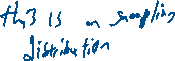 this is a sampling
distribution